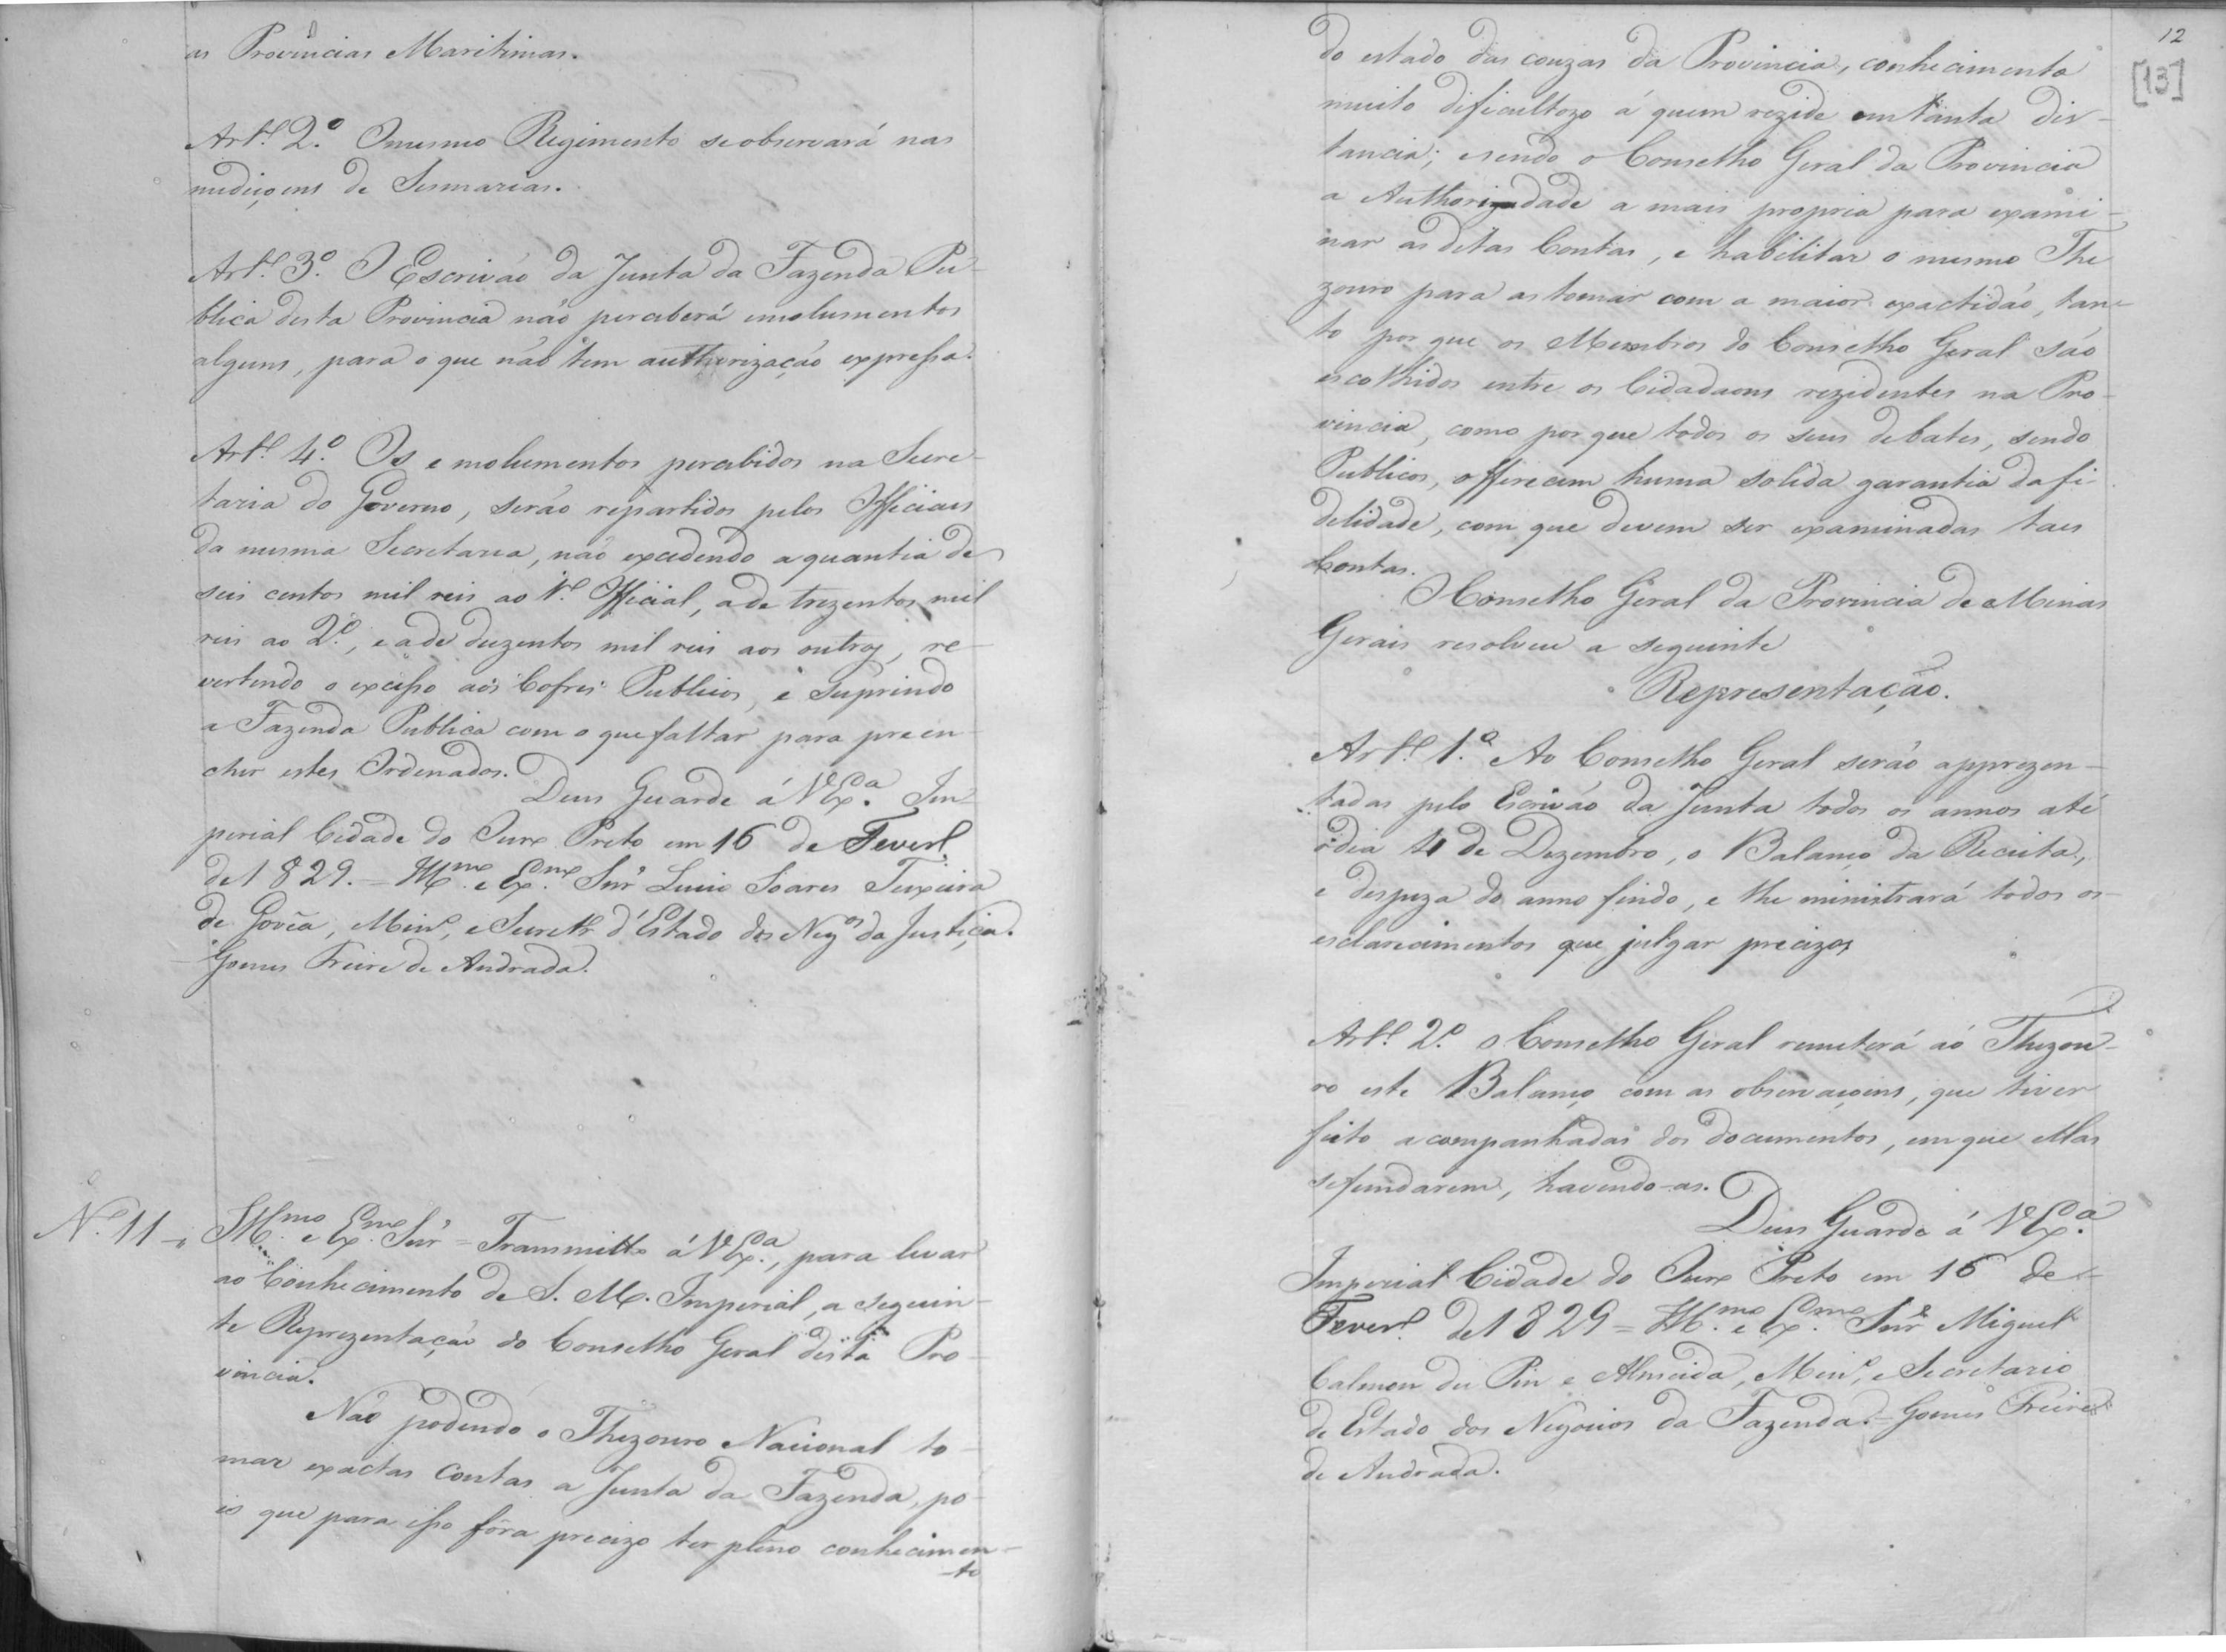 as Provincias Maritimas.
Art.º 2.º O mesmo Regimento se observará nas
mediçoens de Sesmarias.
Art.º 3.º O Escrivão da Junta da Fazenda Pu-
blica desta Provincia não perceberá emolumentos
alguns, para o que não tem authorização expressa.
Art.º 4.º Os emolumentos percebidos na Secre-
taria do Governo, serão repartidos pelos Officiaes
da mesma Secretaria, não excedendo a quantia de
seis centos mil reis ao 1.º Official, a de trezentos mil
reis ao 2.º, e a de duzentos mil reis aos outros, re-
vertendo o excesso aos Cofres Publicos, e suprindo
a Fazenda Publica com o que faltar para preen-
cher estes Ordenados.
Deos Guarde á V. Ex.ª Im-
perial Cidade do Ouro Preto em 16 de Feverº
de 1829. = Illmº e Exmº Snr' Lucio Soares Teixeira
de Govêa, Minº, e Secretrº d'Estado dos Negos da Justiça.
Gomes Freire de Andrada.
Nº 11 - Illmo e Exmo Snr' = Transmitto á V. Ex.ª, para levar
ao Conhecimento de S. M. Imperial, a seguin-
te Reprezentação do Conselho Geral desta Pro-
vincia.
Não podendo o Thezouro Nacional to-
mar exactas Contas a Junta da Fazenda, po-
is que para isso fôra precizo ter pleno conhecimen-
-to
12
[13]
do estado das couzas da Provincia, conhecimento
muito dificultozo á quem rezide em tanta dis-
tancia; e sendo o Conselho Geral da Provincia
a Authoridade a mais propria para exami-
nar as ditas Contas, e habilitar o mesmo The
zouro para as tomar com a maior exactidão, tan-
to por que os Membros do Conselho Geral são
escolhidos entre os Cidadaons rezidentes na Pro-
vincia, como por que todos os seus debates, sendo
Publicos, offerecem huma solida garantia da fi-
delidade, com que devem ser examinadas taes
Contas.
O Conselho Geral da Provincia de Minas
Gerais resolveu a seguinte
Representação.
Art.º 1.º Ao Conselho Geral serão apprezen-
tadas pelo Escrivão da Junta todos os annos até
o dia 4 de Dezembro, o Balanço da Receita,
e despeza do anno findo, e lhe ministrará todos os
esclarecimentos que julgar precizos
Art.º 2.º O Conselho Geral remeterá ao Thezou-
ro este Balanço com as observaçoens, que tiver
feito acompanhadas dos documentos, em que ellas
se fundarem, havendo-as.
Deos Guarde á V. Ex.ª
Imperial Cidade do Ouro Preto em 16 de
Feverº de 1829 = Illmº e Exmº Snr' Miguel
Calmon du Pin e Almeida, Minº, e Secretario
de Estado dos Negocios da Fazenda. = Gomes Freire
de Andrada.